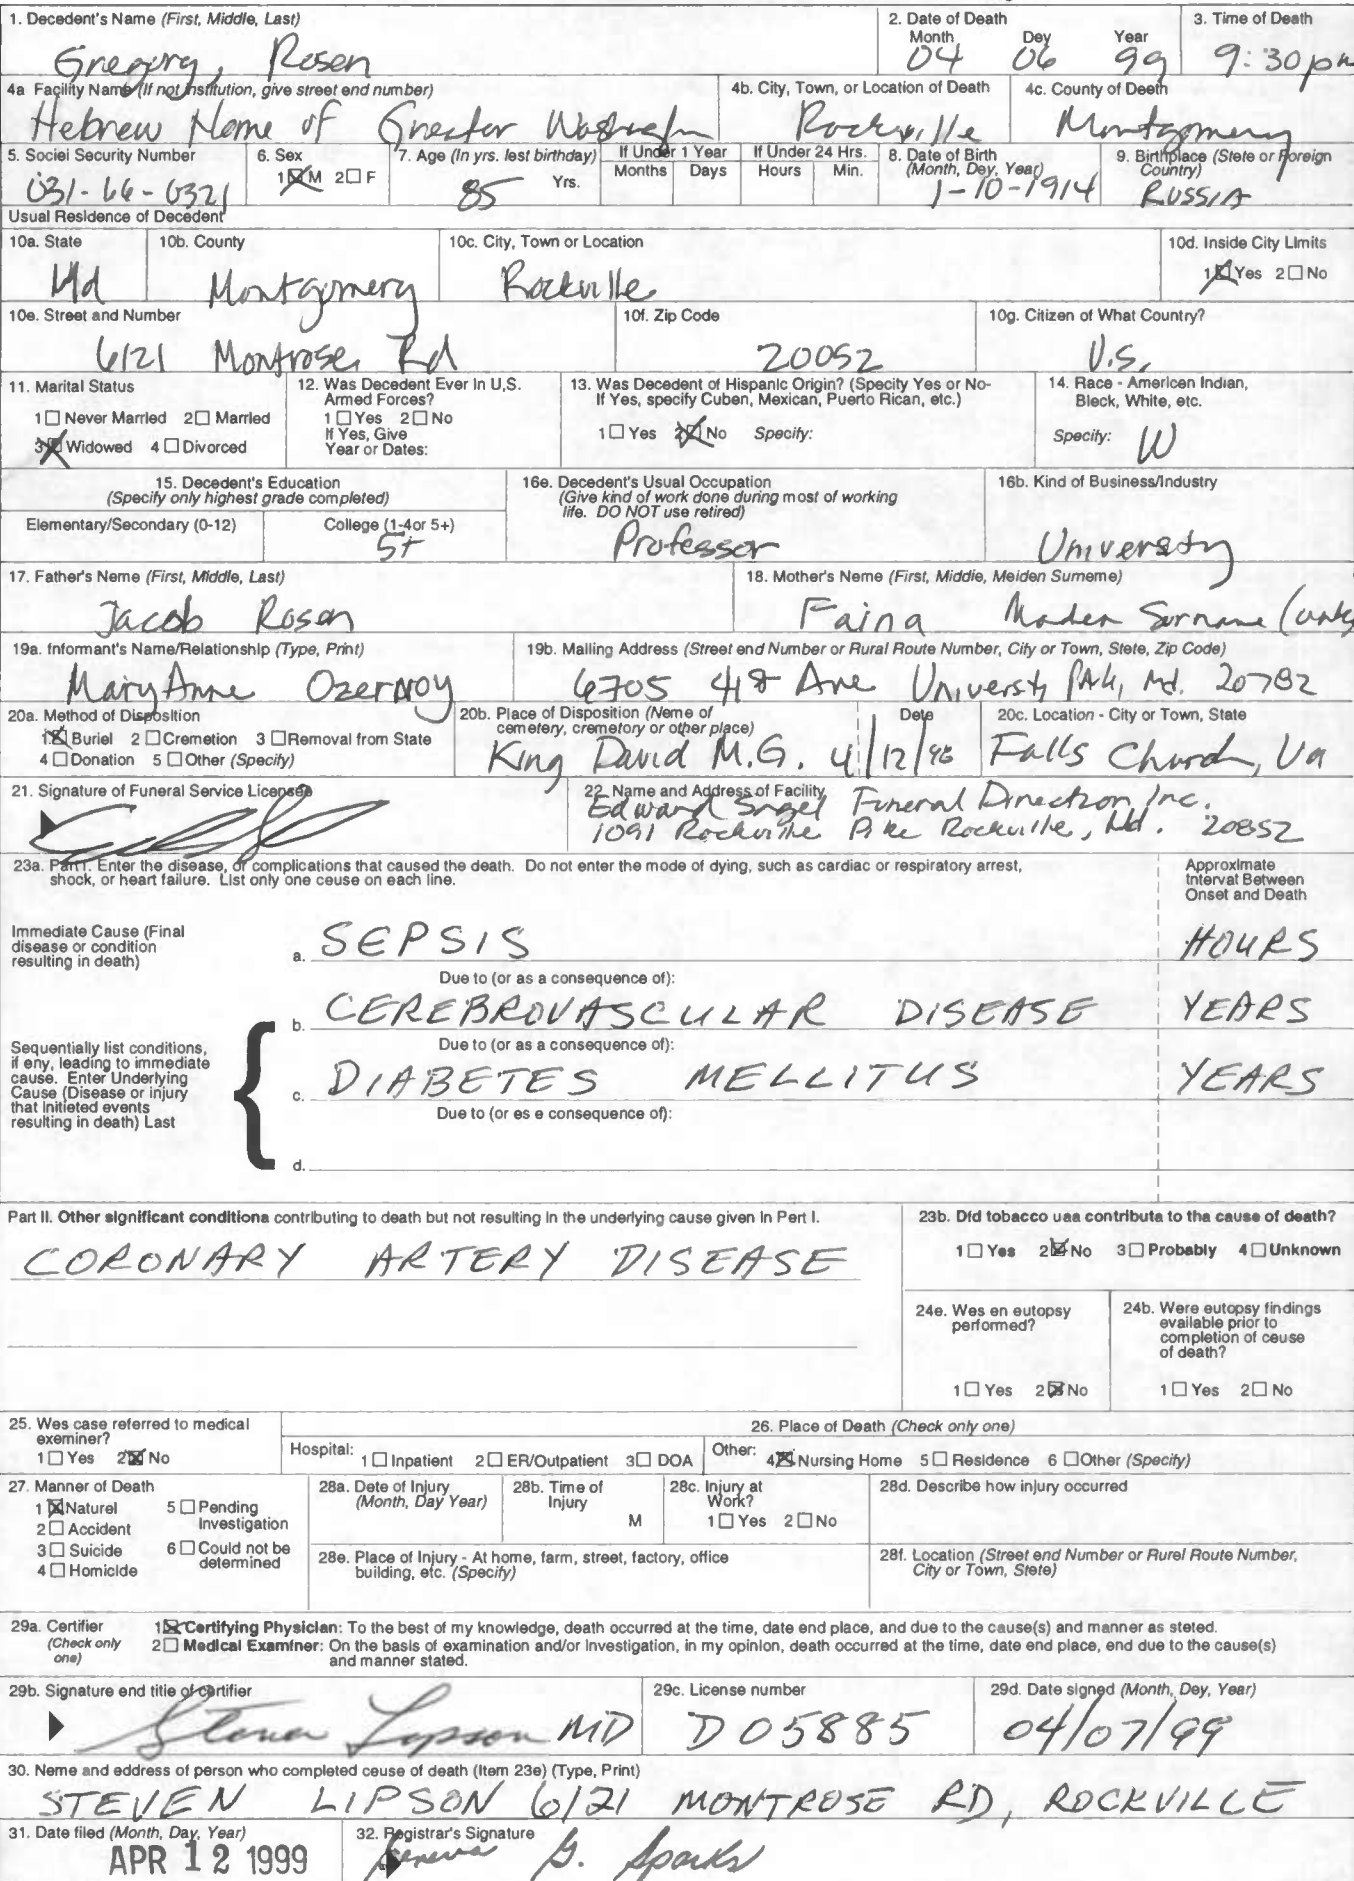 1. Decedent's Name (First, Middle, Last)
Gregory, Rosen
2. Date of Death
Month Dey Year
04 06 99
3. Time of Death
9:30pm
4a Facility Name (If not institution, give street end number)
Hebrew Home of Greater Washington
4b. City, Town, or Location of Death
Rockville
4c. County of Deeth
Montgomery
5. Sociel Security Number
031-66-0321
6. Sex
1 M 2 F
7. Age (In yrs. lest birthday)
85 Yrs.
If Under 1 Year
Months Days
If Under 24 Hrs.
Hours Min.
8. Date of Birth
(Month, Dey, Year)
1-10-1914
9. Birthplace (Stete or Foreign
Country)
RUSSIA
Usual Residence of Decedent
10a. State
Md
10b. County
Montgomery
10c. City, Town or Location
Rockville
10d. Inside City Limits
1 Yes 2 No
10e. Street and Number
6121 Montrose Rd
10f. Zip Code
20052
10g. Citizen of What Country?
U.S.
11. Marital Status
1 Never Married 2 Married
3 Widowed 4 Divorced
12. Was Decedent Ever in U.S.
Armed Forces?
1 Yes 2 No
If Yes, Give
Year or Dates:
13. Was Decedent of Hispanic Origin? (Specify Yes or No-
If Yes, specify Cuben, Mexican, Puerto Rican, etc.)
1 Yes 2 No Specify:
14. Race - Americen Indian,
Bleck, White, etc.
Specify: W
15. Decedent's Education
(Specify only highest grade completed)
Elementary/Secondary (0-12)
College (1-4or 5+)
5+
16e. Decedent's Usual Occupation
(Give kind of work done during most of working
life. DO NOT use retired)
Professor
16b. Kind of Business/Industry
University
17. Father's Name (First, Middle, Last)
Jacob Rosen
18. Mother's Name (First, Middie, Meiden Surneme)
Faina Maiden Surname
19a. Informant's Name/Relationship (Type, Print)
MaryAnne Ozernoy
19b. Malling Address (Street end Number or Rural Route Number, City or Town, Stete, Zip Code)
6705 41st Ave University Park, Md. 20782
20a. Method of Disposition
1 Buriel 2 Cremetion 3 Removal from State
4 Donation 5 Other (Specify)
20b. Place of Disposition (Neme of
cemetery, cremetory or other place)
King David M.G.
Dete
4/12/98
20c. Location - City or Town, State
Falls Church, Va
21. Signature of Funeral Service Licensee
22. Name and Address of Facility
Edward Sagel Funeral Direction Inc.
1091 Rockville Pike Rockville, Md. 20852
23a. Part I. Enter the disease, or complications that caused the death. Do not enter the mode of dying, such as cardiac or respiratory arrest,
shock, or heart failure. List only one ceuse on each line.
Approximate
Interval Between
Onset and Death
Immediate Cause (Final
disease or condition
resulting in death)
a. SEPSIS HOURS
Due to (or as a consequence of):
b. CEREBROVASCULAR DISEASE YEARS
Sequentially list conditions,
if eny, leading to immediate
cause. Enter Underlying
Cause (Disease or injury
that initieted events
resulting in death) Last
Due to (or as a consequence of):
c. DIABETES MELLITUS YEARS
Due to (or es e consequence of):
d.
Part II. Other significant conditiona contributing to death but not resulting in the underlying cause given in Pert I.
CORONARY ARTERY DISEASE
23b. Dfd tobacco uaa contributa to tha cause of death?
1 Yes 2 No 3 Probably 4 Unknown
24e. Wes en eutopsy
performed?
1 Yes 2 No
24b. Were eutopsy findings
evailable prior to
completion of ceuse
of death?
1 Yes 2 No
25. Wes case referred to medical
exeminer?
1 Yes 2 No
26. Place of Death (Check only one)
Hospital: 1 Inpatient 2 ER/Outpatient 3 DOA
Other: 4 Nursing Home 5 Residence 6 Other (Specify)
27. Manner of Death
1 Naturel
2 Accident
3 Suicide
4 Homicide
5 Pending
Investigation
6 Could not be
determined
28a. Dete of Injury
(Month, Day Year)
28b. Time of
Injury
M
28c. Injury at
Work?
1 Yes 2 No
28d. Describe how injury occurred
28e. Place of Injury - At home, farm, street, factory, office
building, etc. (Specify)
28f. Location (Street end Number or Rurel Route Number,
City or Town, Stete)
29a. Certifier
(Check only
one)
1 Certifying Physician: To the best of my knowledge, death occurred at the time, date end place, and due to the cause(s) and manner as steted.
2 Medical Examfner: On the basis of examination and/or investigation, in my opinion, death occurred at the time, date end place, end due to the cause(s)
and manner stated.
29b. Signature end title of certifier
Steven Lipson MD
29c. License number
D05885
29d. Date signed (Month, Dey, Year)
04/07/99
30. Neme and eddress of person who completed ceuse of death (Item 23e) (Type, Print)
STEVEN LIPSON 6121 MONTROSE RD, ROCKVILLE
31. Date filed (Month, Day, Year)
APR 12 1999
32. Registrar's Signature
Geneva G. Sparks